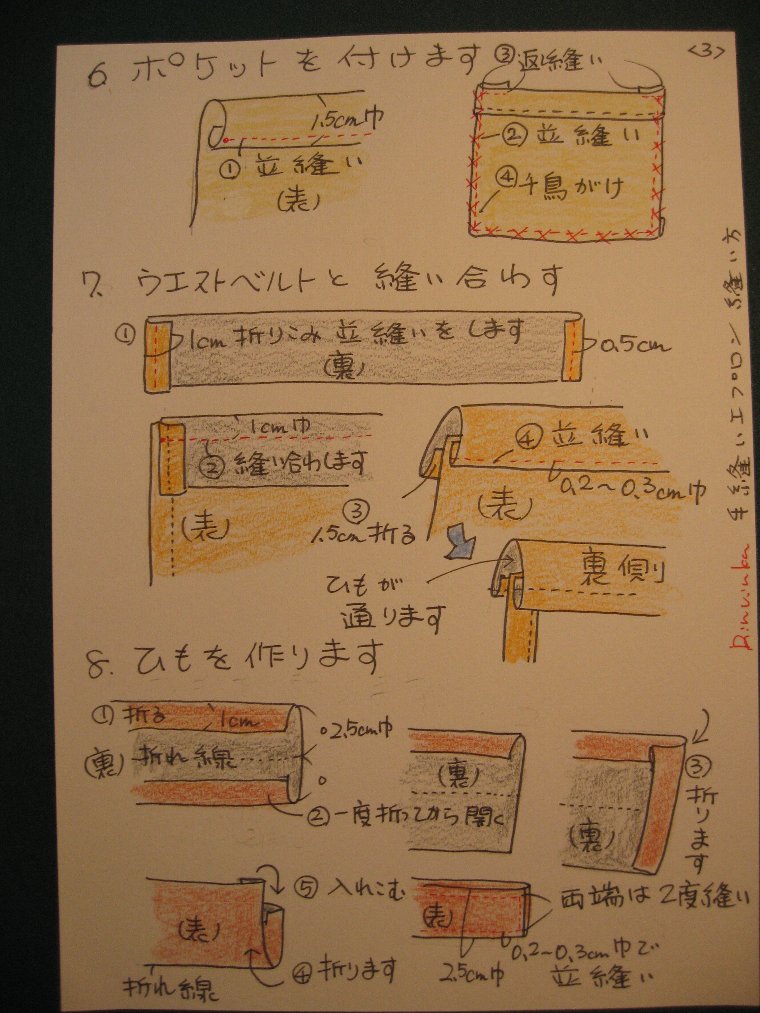 <3>
6. ポケットを付けます
③返し縫い
1.5cm巾
①並縫い
(表)
②並縫い
④千鳥がけ
7. ウエストベルトと縫い合わす
①
1cm折りこみ並縫いをします
(裏)
0.5cm
1cm巾
②縫い合わします
(表)
③
1.5cm折る
④並縫い
0.2〜0.3cm巾
(表)
ひもが
通ります
裏側
8. ひもを作ります
①折る
1cm
2.5cm巾
(裏)
折れ線
②一度折ってから開く
(裏)
(裏)
③折ります
(表)
折れ線
④折ります
⑤入れこむ
(表)
両端は2度縫い
2.5cm巾
0.2〜0.3cm巾で
並縫い
手縫いエプロン縫い方